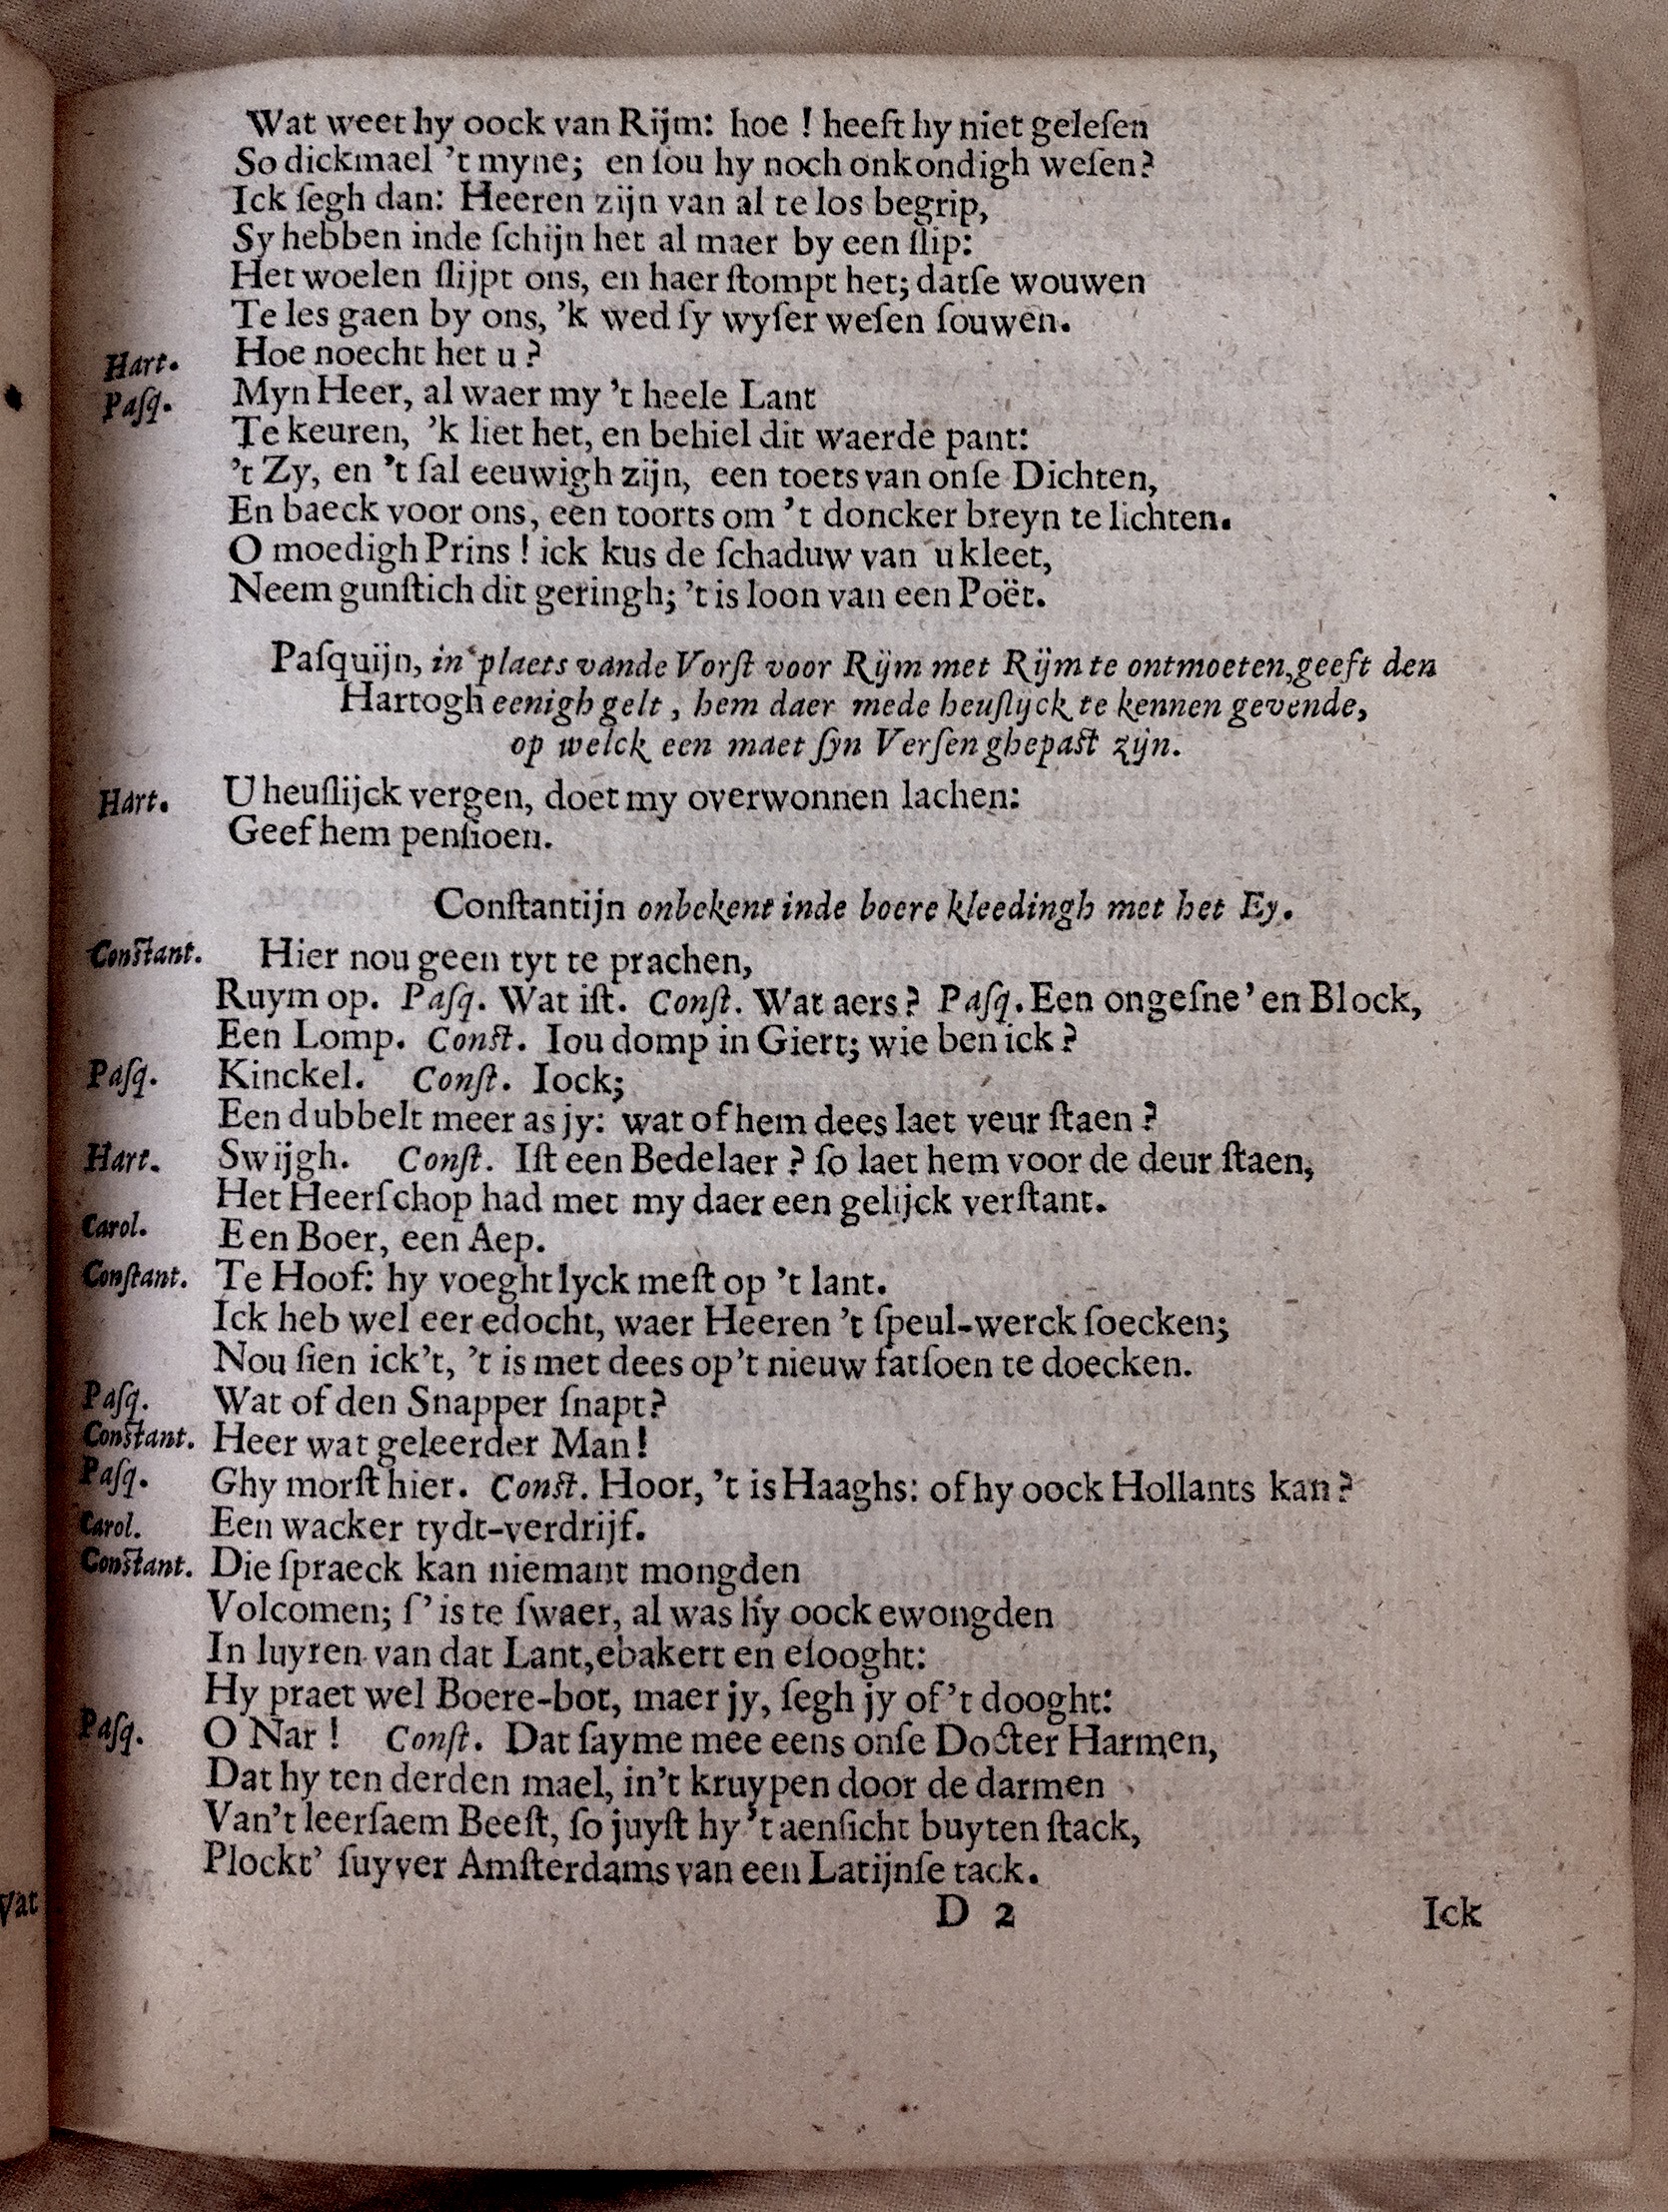 Wat weet hy oock van Rijm: hoe ! heeft hy niet geleſen
So dickmael 't myne; en ſou hy noch onkondigh weſen?
Ick ſegh dan: Heeren zijn van al te los begrip,
Sy hebben inde ſchijn het al maer by een ſlip:
Het woelen ſlijpt ons, en haer ſtompt het; datſe wouwen
Te les gaen by ons, 'k wed ſy wyſer weſen ſouwen.
Hart. Hoe noecht het u ?
Paſq. Myn Heer, al waer my 't heele Lant
Te keuren, 'k liet het, en behiel dit waerde pant:
't Zy, en 't ſal eeuwigh zijn, een toets van onſe Dichten,
En baeck voor ons, een toorts om 't doncker breyn te lichten.
O moedigh Prins ! ick kus de ſchaduw van u kleet,
Neem gunſtich dit geringh; 't is loon van een Poët.
Paſquijn, in plaets vande Vorſt voor Rijm met Rijm te ontmoeten, geeft den
Hartogh eenigh gelt, hem daer mede heuſlyck te kennen gevende,
op welck een maet ſyn Verſen ghepaſt zijn.
Hart. U heuſlijck vergen, doet my overwonnen lachen:
Geef hem penſioen.
Conſtantijn onbekent inde boere kleedingh met het Ey.
Conſtant. Hier nou geen tyt te prachen,
Ruym op. Paſq. Wat iſt. Conſt. Wat aers? Paſq. Een ongeſne' en Block,
Een Lomp. Conſt. Iou domp in Giert; wie ben ick ?
Paſq. Kinckel. Conſt. Iock;
Een dubbelt meer as jy: wat of hem dees laet veur ſtaen ?
Hart. Swijgh. Conſt. Iſt een Bedelaer ? ſo laet hem voor de deur ſtaen,
Het Heerſchop had met my daer een gelijck verſtant.
Carol. Een Boer, een Aep.
Conſtant. Te Hoof: hy voeght lyck meſt op 't lant.
Ick heb wel eer edocht, waer Heeren 't ſpeul-werck ſoecken;
Nou ſien ick't, 't is met dees op't nieuw fatſoen te doecken.
Paſq. Wat of den Snapper ſnapt?
Conſtant. Heer wat geleerder Man!
Paſq. Ghy morſt hier. Conſt. Hoor, 't is Haaghs: of hy oock Hollants kan?
Carol. Een wacker tydt-verdrijf.
Conſtant. Die ſpraeck kan niemant mongden
Volcomen; ſ' is te ſwaer, al was hy oock ewongden
In luyren van dat Lant, ebakert en eſooght:
Hy praet wel Boere-bot, maer jy, ſegh jy of 't dooght:
Paſq. O Nar ! Conſt. Dat ſayme mee eens onſe Docter Harmen,
Dat hy ten derden mael, in't kruypen door de darmen
Van't leerſaem Beeſt, ſo juyſt hy 't aenſicht buyten ſtack,
Plockt' ſuyver Amſterdams van een Latijnſe tack.
D 2 Ick